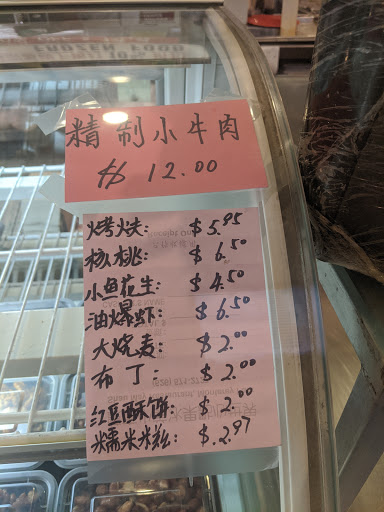 FROZEN FOOD
精制小牛肉
$ 12.00
烤夫: $5.95
核桃: $6.50
小鱼花生: $4.50
油爆虾: $6.50
大烧麦: $2.00
布丁: $2.00
红豆酥饼: $2.00
糯米米糕: $2.97